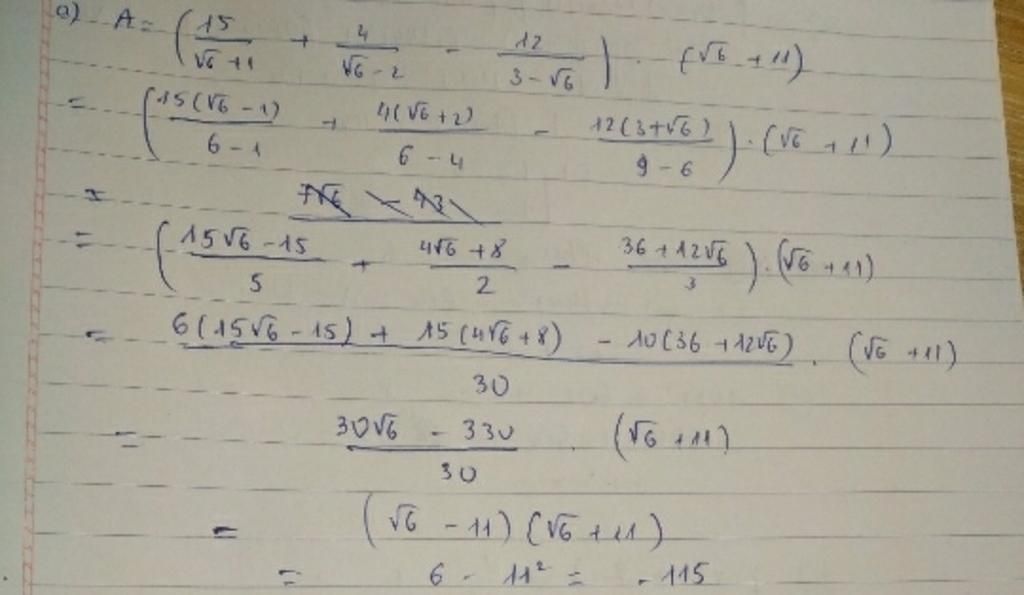 a) A = (15/(√6 + 1) + 4/(√6 - 2) - 12/(3 - √6)) . (√6 + 11)
= (15(√6 - 1)/(6 - 1) + 4(√6 + 2)/(6 - 4) - 12(3 + √6)/(9 - 6)) . (√6 + 11)
=
= ((15√6 - 15)/5 + (4√6 + 8)/2 - (36 + 12√6)/3) . (√6 + 11)
= (6(15√6 - 15) + 15(4√6 + 8) - 10(36 + 12√6))/30 . (√6 + 11)
= (30√6 - 330)/30 . (√6 + 11)
= (√6 - 11)(√6 + 11)
= 6 - 11² = -115